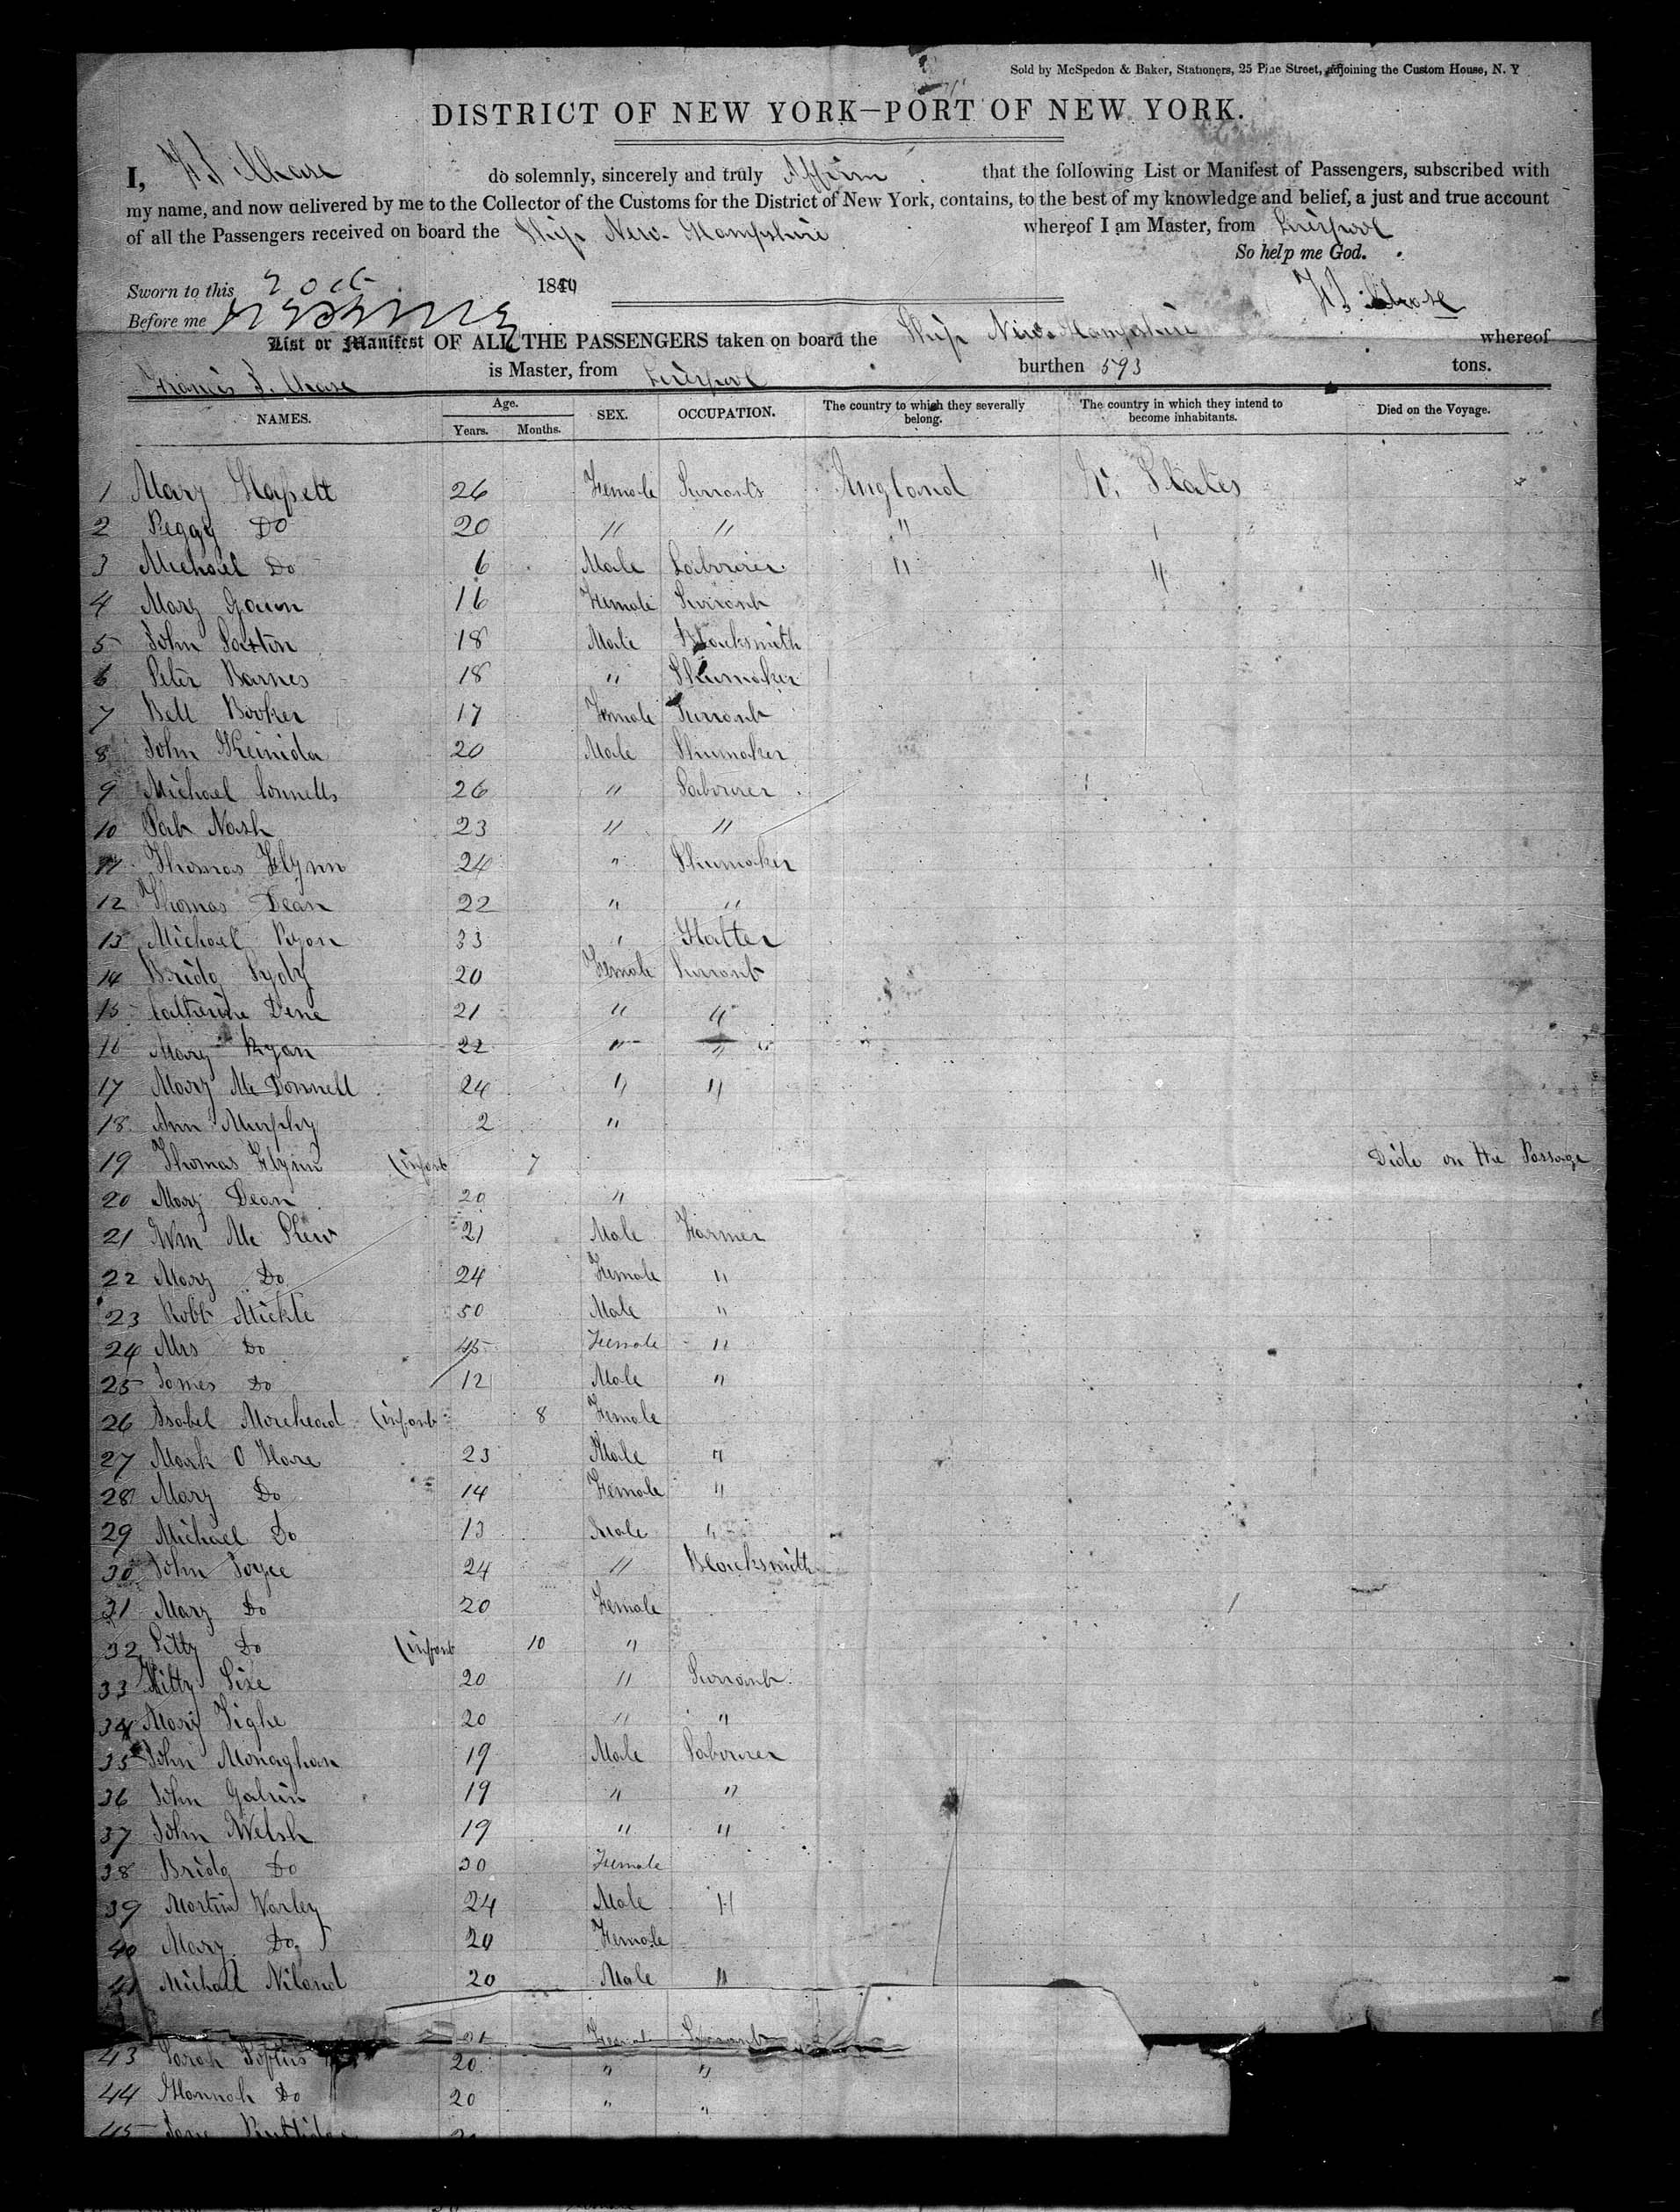 Sold by McSpedon & Baker, Stationers, 25 Pine Street, adjoining the Custom House, N. Y
DISTRICT OF NEW YORK—PORT OF NEW YORK.
I, do solemnly, sincerely and truly Affirm that the following List or Manifest of Passengers, subscribed with
my name, and now delivered by me to the Collector of the Customs for the District of New York, contains, to the best of my knowledge and belief, a just and true account
of all the Passengers received on board the Ship New Hampshire whereof I am Master, from Liverpool
So help me God.
Sworn to this 2 Oct 184
Before me
List or Manifest OF ALL THE PASSENGERS taken on board the Ship New Hampshire whereof
Francis is Master, from Liverpool burthen 593 tons.
NAMES. Age. Years. Months. SEX. OCCUPATION. The country to which they severally belong. The country in which they intend to become inhabitants. Died on the Voyage.
1 Mary 26 Female Servants England U. States
2 Peggy Do 20 " " "
3 Michael Do 6 Male Labourer " "
4 Mary 16 Female Servant
5 John 18 Male Blacksmith
6 Peter Barnes 18 " Shumaker
7 Bell Booker 17 Female Servant
8 John 20 Male Shumaker
9 Michael Connells 26 " Labourer
10 Pat Nash 23 " "
11 Thomas Flynn 24 " Shumaker
12 Thomas Dean 22 " "
13 Michael Ryan 33 " Hatter
14 Bridg 20 Female Servant
15 Catherine Dene 21 " "
16 Mary Ryan 22 " "
17 Mary Mc Donnell 24 " "
18 Ann Murphy 2 "
19 Thomas Flynn (infant 7 Dide on the Passage
20 Mary Dean 20 "
21 Wm Mc 21 Male Farmer
22 Mary Do 24 Female "
23 Robt Mickle 50 Male "
24 Mrs Do 45 Female "
25 James Do 12 Male "
26 Isabel Morehead (infant 8 Female
27 Mark O Hare 23 Male "
28 Mary Do 14 Female "
29 Michael Do 13 Male "
30 John Joyce 24 " Blacksmith
31 Mary Do 20 Female
32 Do (infant 10 "
33 Kitty 20 " Servant
34 Mary Tighe 20 " "
35 John Monaghan 19 Male Labourer
36 John Galvin 19 " "
37 John Welsh 19 " "
38 Bridg Do Female
39 Martin Varley 24 Male "
40 Mary Do 20 Female
41 Michall Niland 20 Male "
Servant
43 Sarah 20 " "
44 Hannah Do 20 " "
45